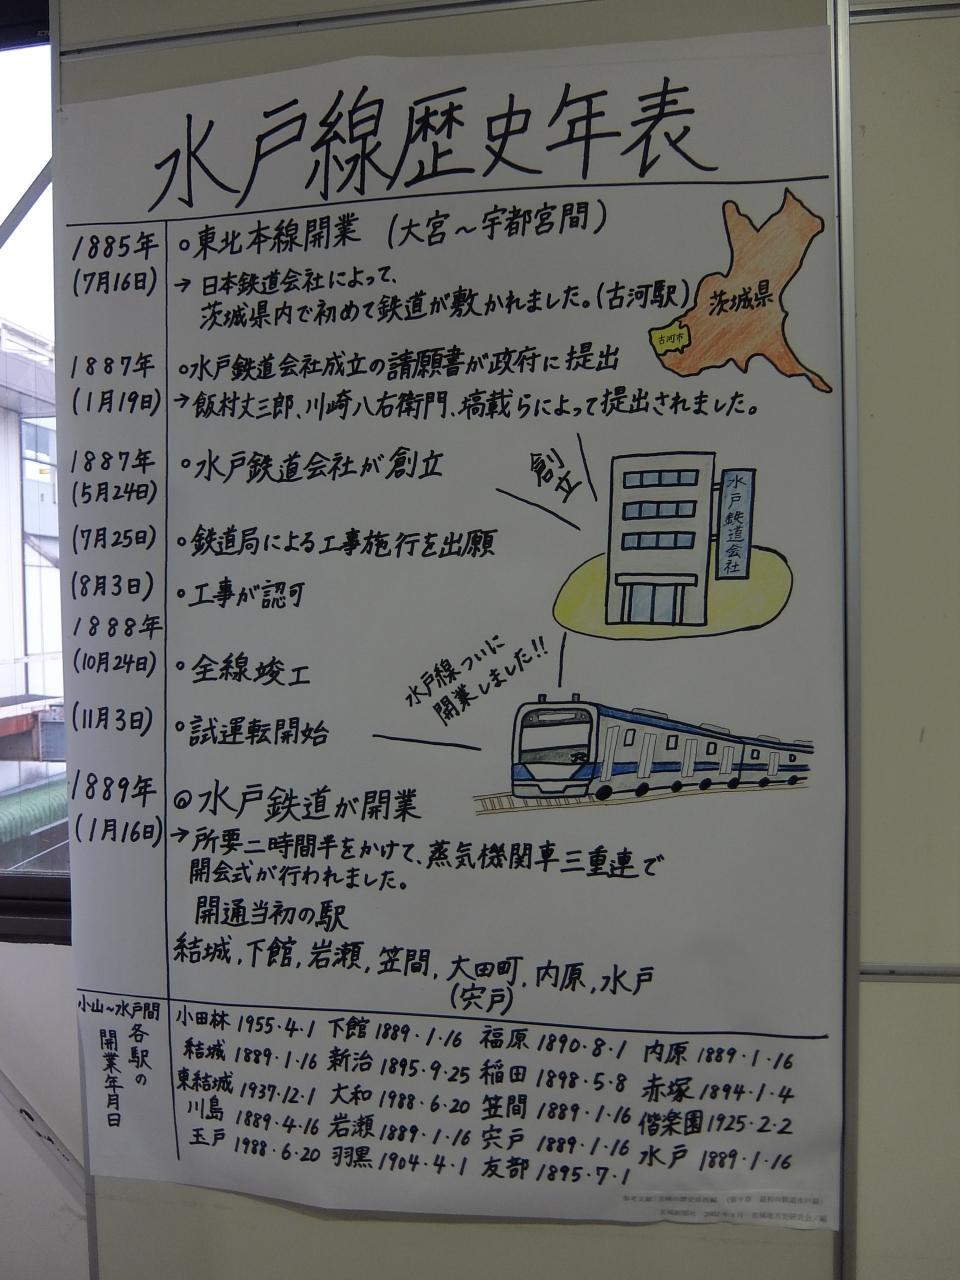 水戸線歴史年表
1885年
(7月16日)
○東北本線開業 (大宮～宇都宮間)
→日本鉄道会社によって、
茨城県内で初めて鉄道が敷かれました。(古河駅)
茨城県
古河市
1887年
(1月19日)
○水戸鉄道会社成立の請願書が政府に提出
→飯村丈三郎、川崎八右衛門、塙載らによって提出されました。
1887年
(5月24日)
○水戸鉄道会社が創立
創立
水戸鉄道会社
(7月25日)
○鉄道局による工事施行を出願
(8月3日)
○工事が認可
1888年
(10月24日)
○全線竣工
(11月3日)
○試運転開始
水戸線ついに
開業しました!!
1889年
(1月16日)
◎水戸鉄道が開業
→所要二時間半をかけて、蒸気機関車三重連で
開会式が行われました。
開通当初の駅
結城,下館,岩瀬,笠間,大田町,内原,水戸
(宍戸)
小山～水戸間
各駅の
開業年月日
小田林 1955・4・1 下館 1889・1・16 福原 1890・8・1 内原 1889・1・16
結城 1889・1・16 新治 1895・9・25 稲田 1898・5・8 赤塚 1894・1・4
東結城 1937・12・1 大和 1988・6・20 笠間 1889・1・16 偕楽園 1925・2・2
川島 1889・4・16 岩瀬 1889・1・16 宍戸 1889・1・16 水戸 1889・1・16
玉戸 1988・6・20 羽黒 1904・4・1 友部 1895・7・1